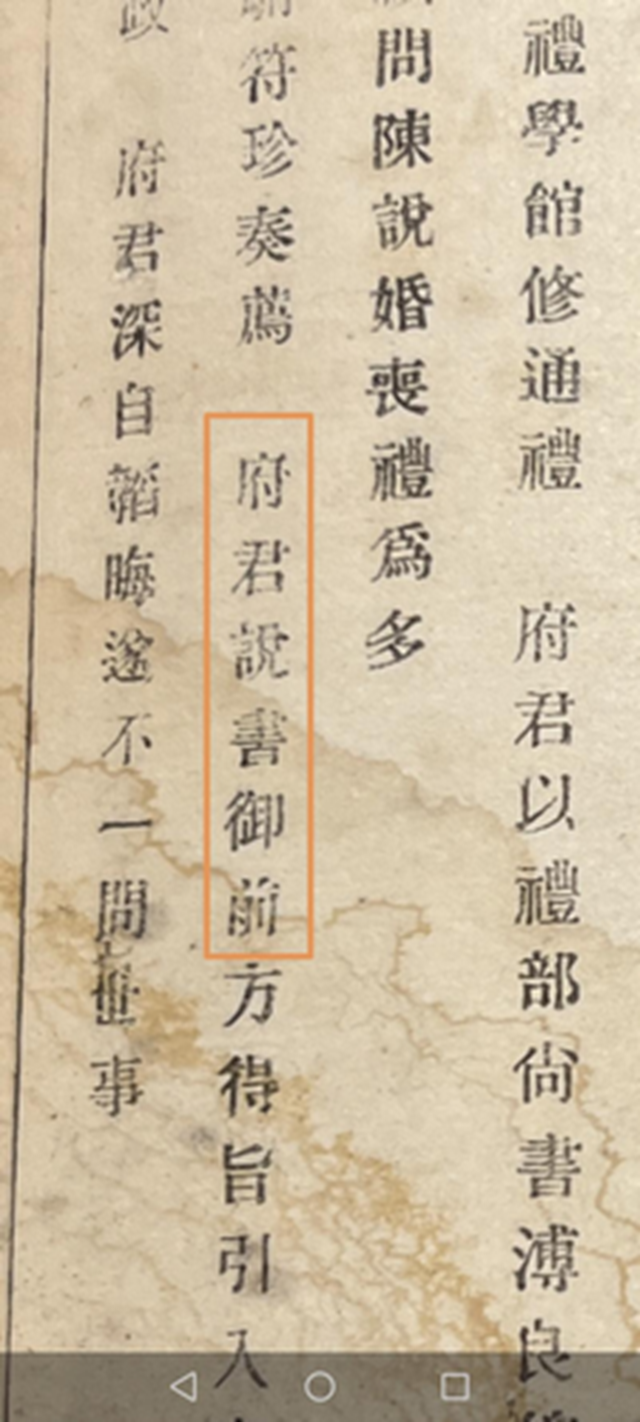 禮學館修通禮　府君以禮部尙書溥良
問陳說婚喪禮爲多
符珍奏薦　府君說書御前方得旨引入
政　府君深自韜晦遂不一問世事